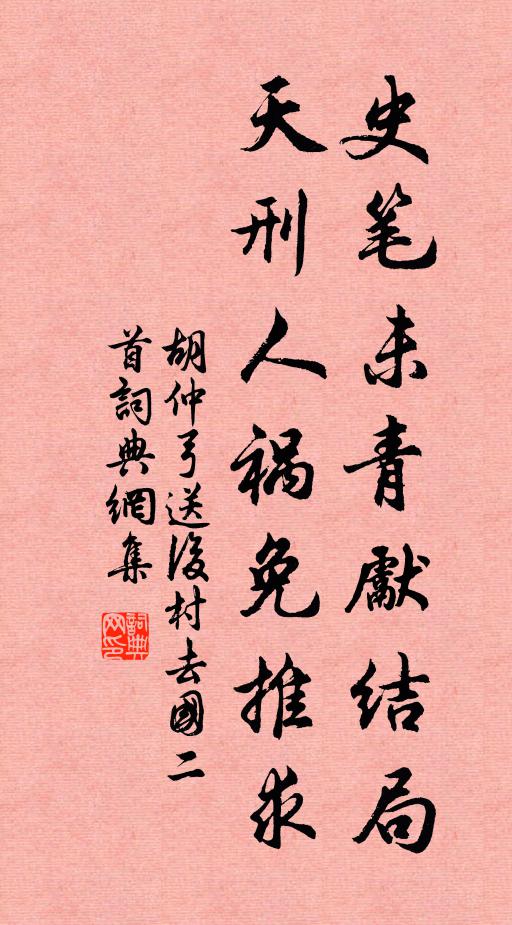 史笔未青獻结局
天刑人祸免推求
胡仲弓送後村去國二
首詞典網集
詞典
网印